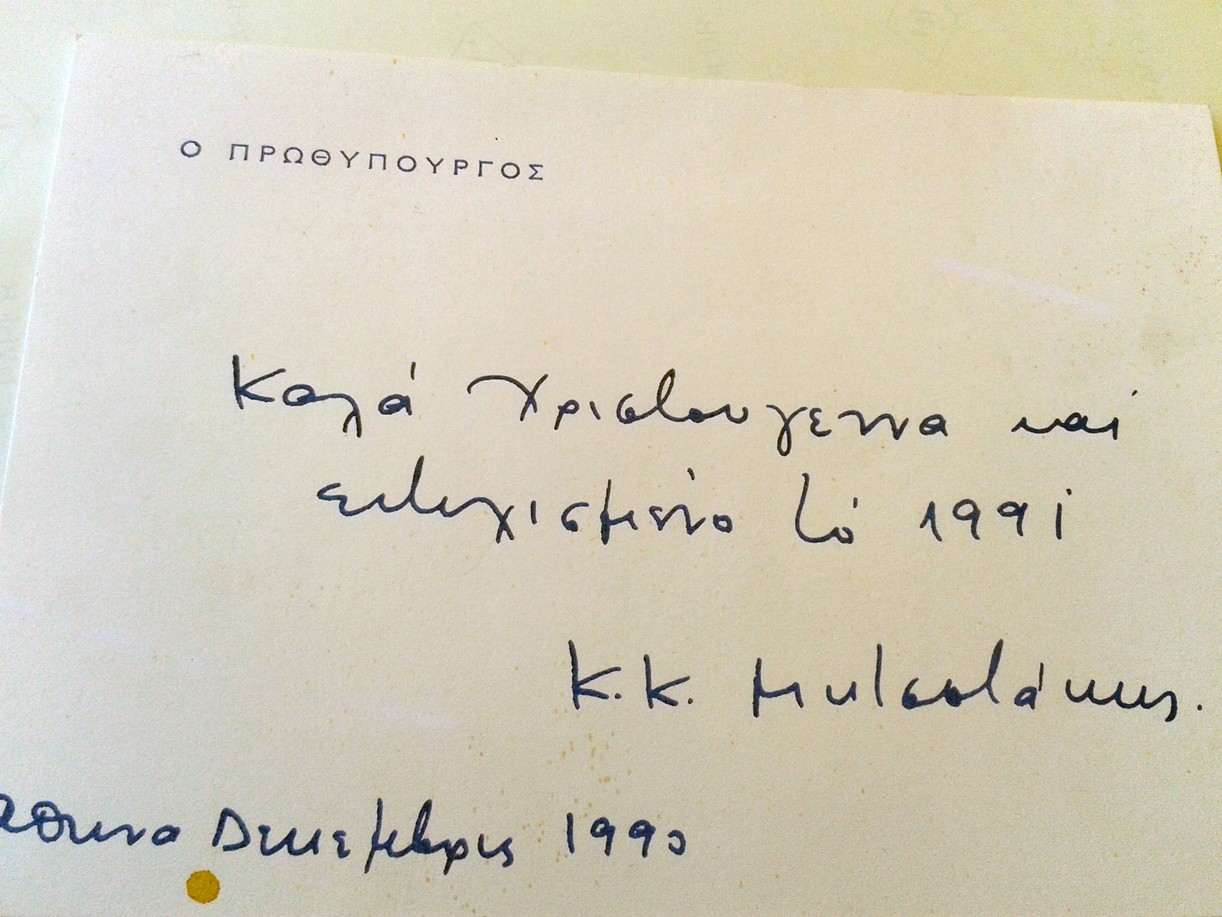 Ο ΠΡΩΘΥΠΟΥΡΓΟΣ
Καλά Χριστουγεννα και
ευτυχισμένο τό 1991
Κ. Κ. Μητσοτάκης.
Αθηνα Δεκεμβρης 1990